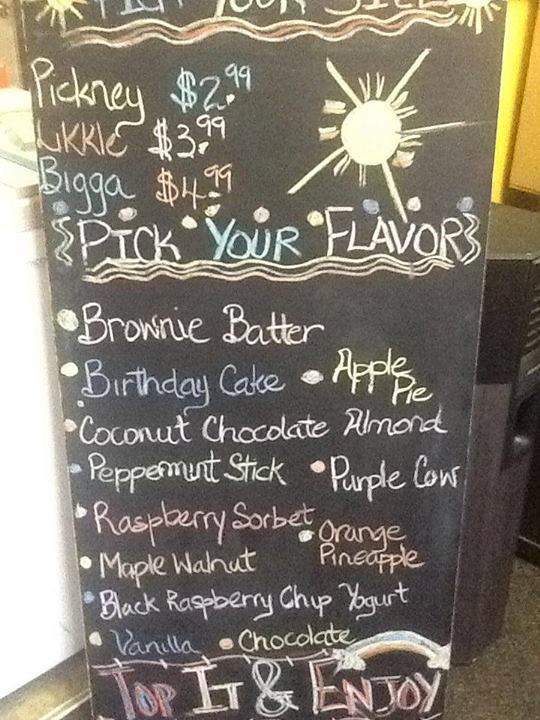 PICK YOUR SIZE
Pickney $2.99
Likkle $3.99
Bigga $4.99
PICK YOUR FLAVOR
Brownie Batter
Birthday Cake • Apple Pie
Coconut Chocolate Almond
Peppermint Stick • Purple Cow
Raspberry Sorbet
• Orange Pineapple
Maple Walnut
Black Raspberry Chip Yogurt
Vanilla • Chocolate
TOP IT & ENJOY